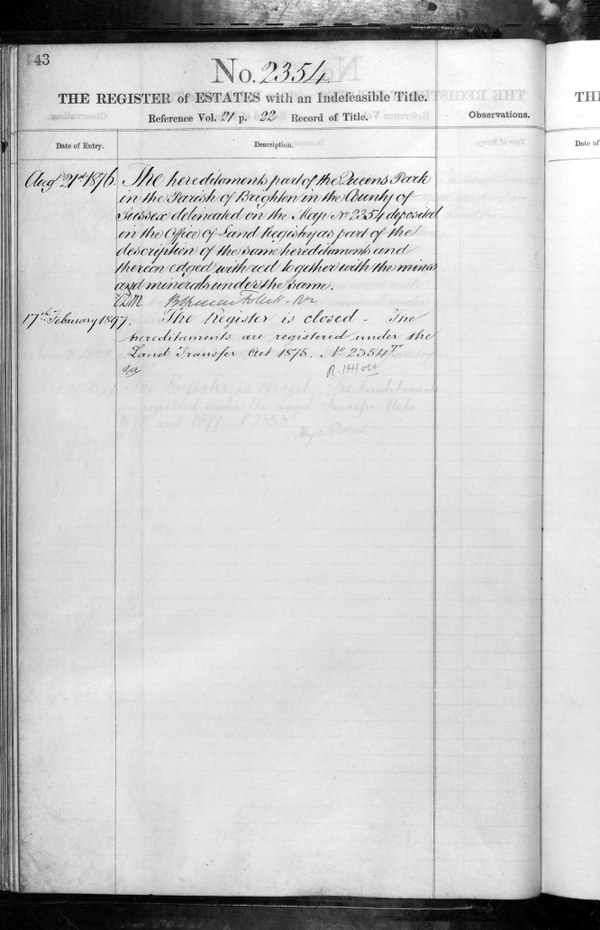 43
No. 2354.
THE REGISTER of ESTATES with an Indefeasible Title.
Reference Vol. 21 p. 22 Record of Title.
Observations.
Date of Entry.
Description.
Augt 21st 1876. The hereditaments part of the Queens Park
in the Parish of Brighton in the County of
Sussex delineated on the Map No 2354 deposited
in the Office of Land Registry as part of the
description of the same hereditaments and
thereon edged with red together with the mines
and minerals under the same.
17th February 1897. The Register is closed - The
hereditaments are registered under the
Land Transfer Act 1875. No 2354
The Register is closed. The hereditaments
registered under the Land Transfer Acts
1875 and 1897
TH
Date of